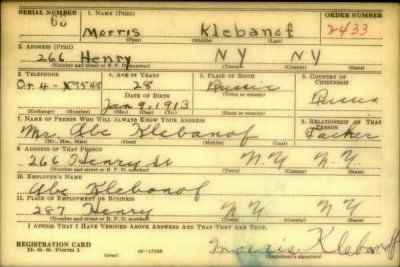 SERIAL NUMBER 1. NAME (Print) ORDER NUMBER
60 Morris Klebanof 2433
(First) (Middle) (Last)
2. ADDRESS (Print)
266 Henry NY NY
(Number and street or R. F. D. number) (Town) (County) (State)
3. TELEPHONE 4. AGE IN YEARS 5. PLACE OF BIRTH 6. COUNTRY OF CITIZENSHIP
28 Russia
Or. 4- 9548 DATE OF BIRTH (Town or county)
Jan. 9, 1913 Russia
(Exchange) (Number) (Mo.) (Day) (Yr.) (State or country)
7. NAME OF PERSON WHO WILL ALWAYS KNOW YOUR ADDRESS 8. RELATIONSHIP OF THAT PERSON
Mr. Abe Klebanof Father
(Mr., Mrs., Miss) (First) (Middle) (Last)
9. ADDRESS OF THAT PERSON
266 Henry St N.Y. N.Y.
(Number and street or R. F. D. number) (Town) (County) (State)
10. EMPLOYER'S NAME
Abe Klebanof
11. PLACE OF EMPLOYMENT OR BUSINESS
287 Henry NY N.Y.
(Number and street or R. F. D. number) (Town) (County) (State)
I AFFIRM THAT I HAVE VERIFIED ABOVE ANSWERS AND THAT THEY ARE TRUE.
REGISTRATION CARD
D. S. S. Form 1 (over) 16-17105 Morris Klebanoff
(Registrant's signature)